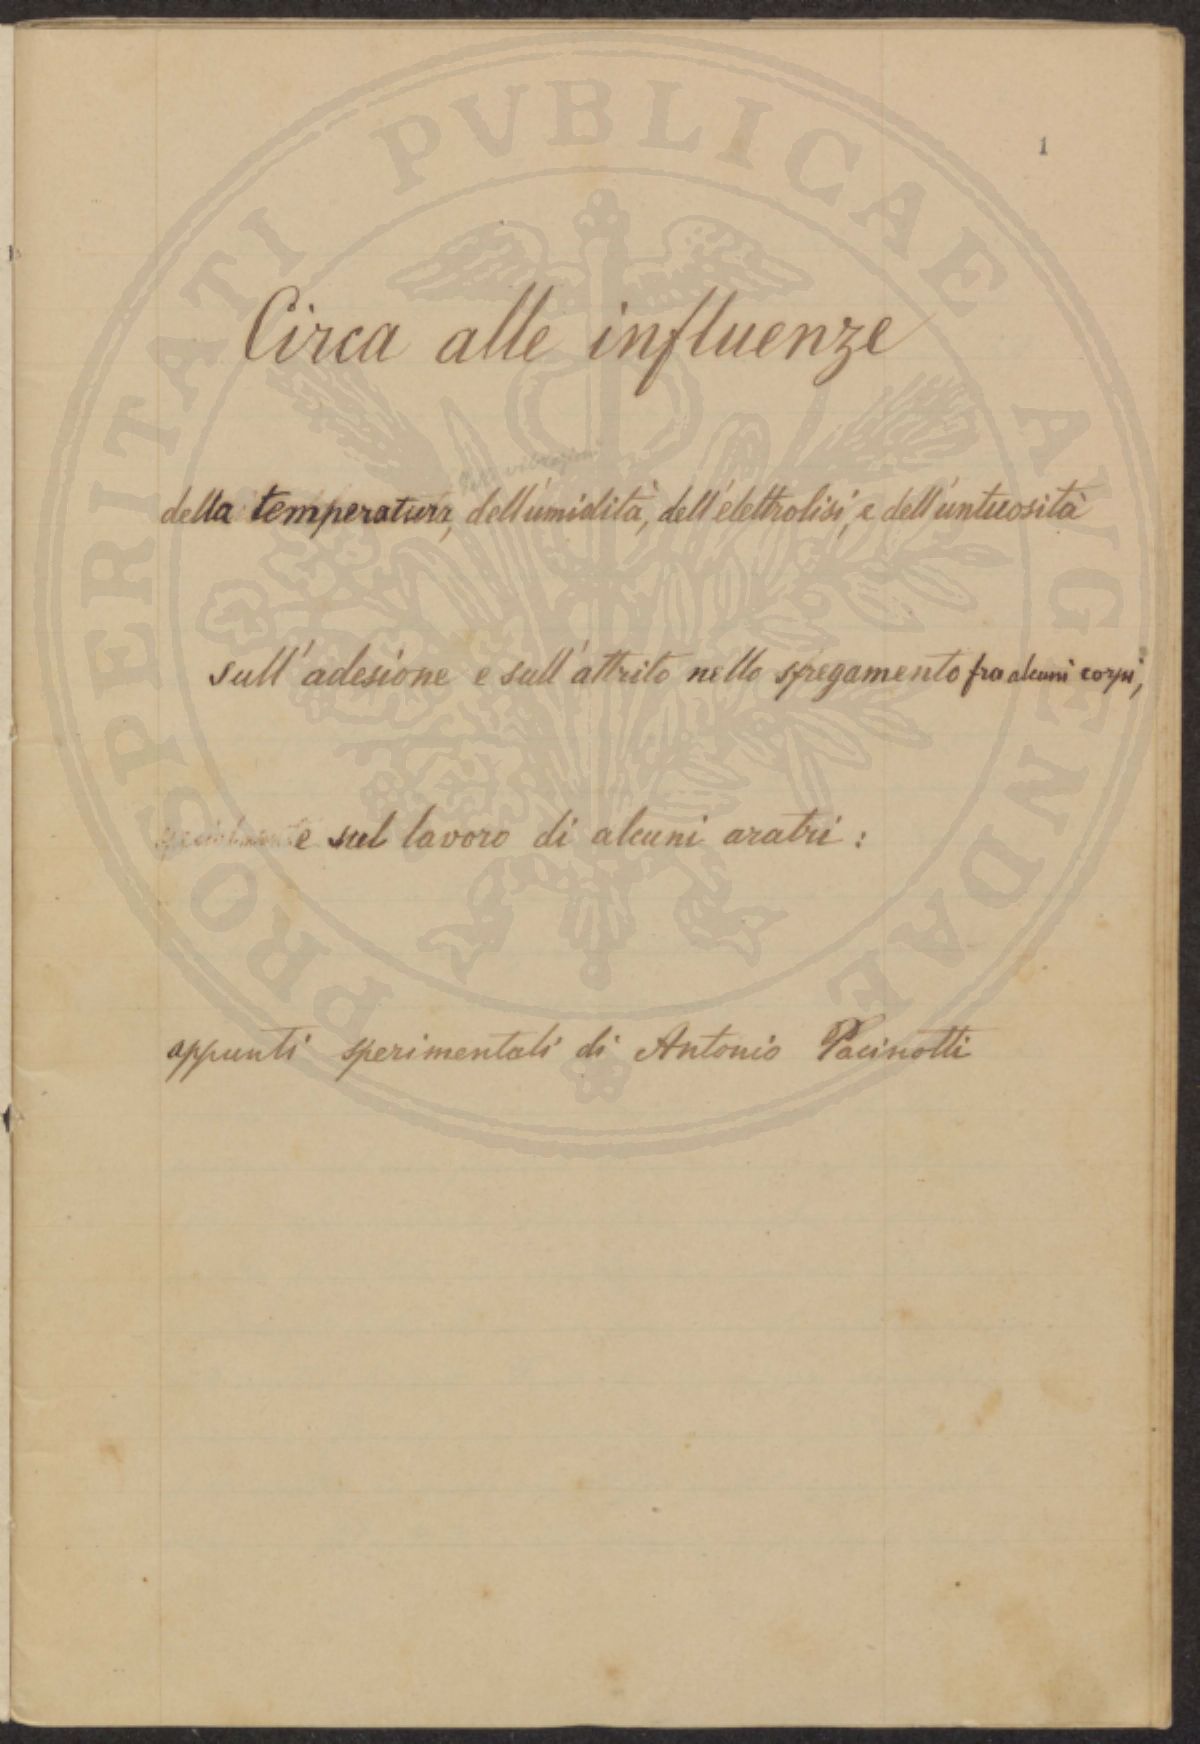 1
Circa alle influenze
delle vibrazioni
della temperatura, dell'umidità, dell'elettrolisi, e dell'untuosità
sull'adesione e sull'attrito nello sfregamento fra alcuni corpi,
specialmente sul lavoro di alcuni aratri:
appunti sperimentali di Antonio Pacinotti
PROSPERITATI PVBLICAE AVGENDAE